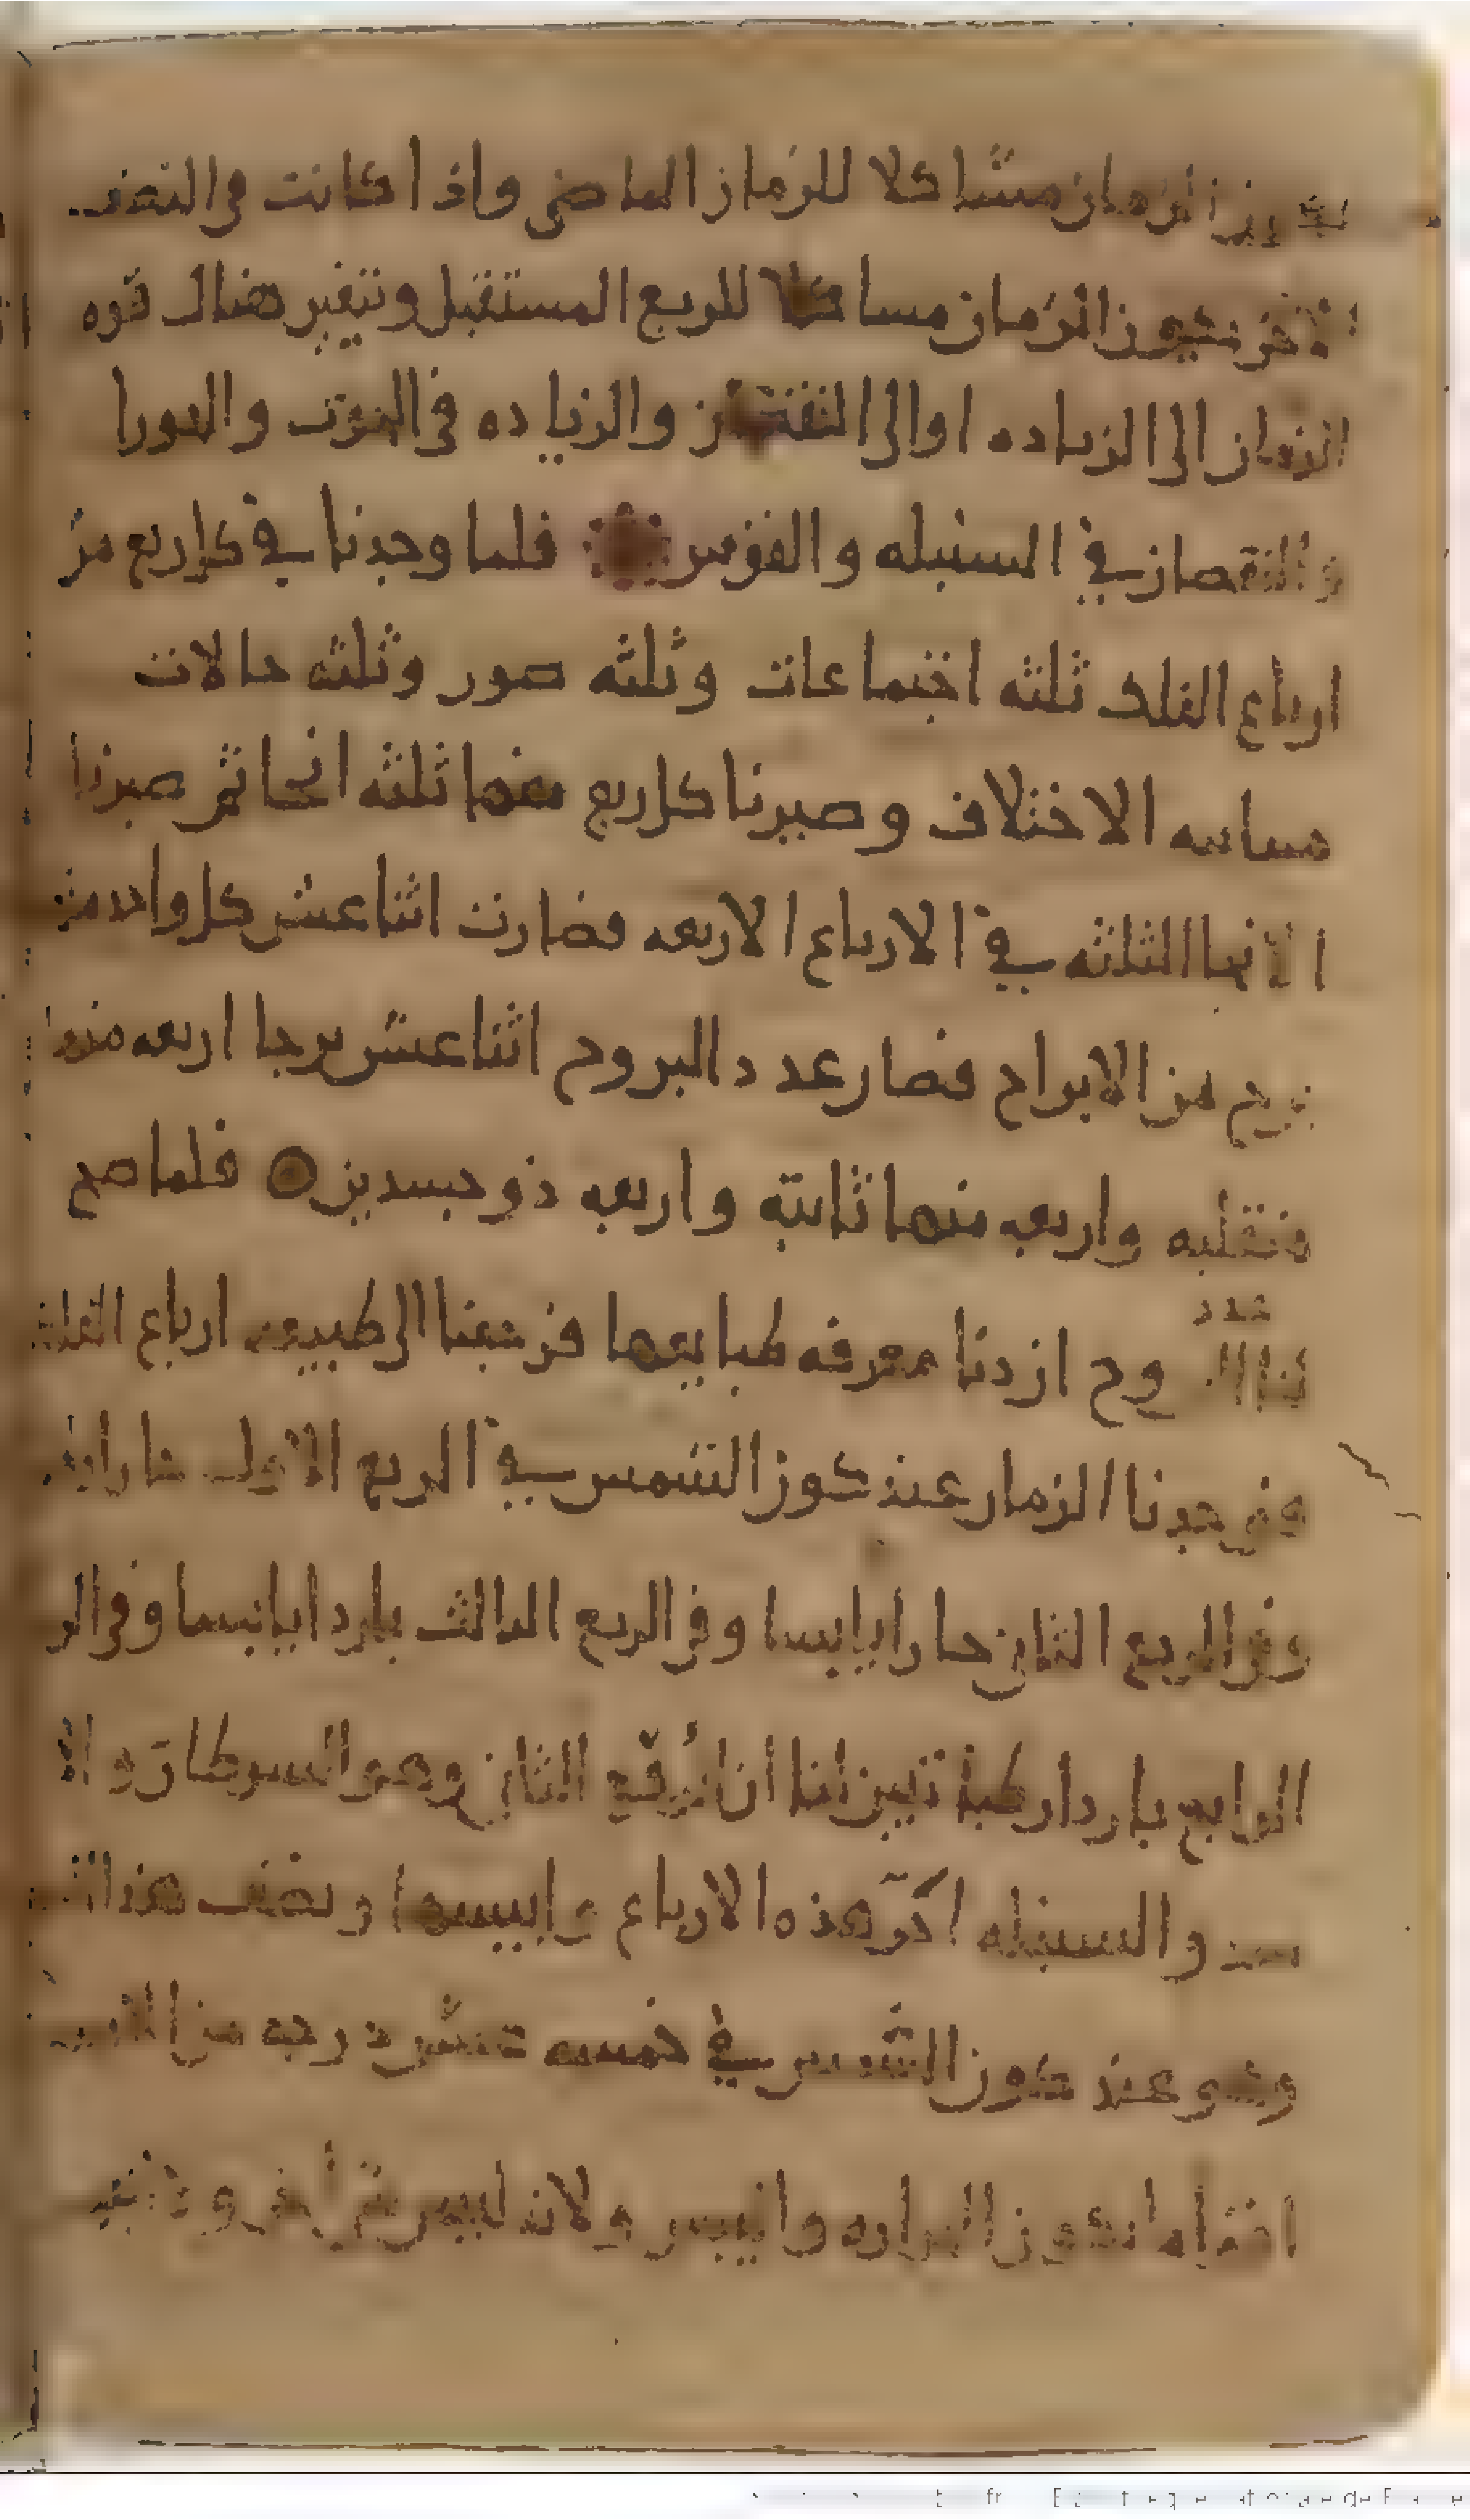 الزمان مشاكلا للزمان الماضى واذا كانت فى النصف
الزمان مساكلا للربع المستقبل وتتغير هناك قوه
الزمان الى الزياده او الى النقصان والزياده فى الحوت والجوزا
والنقصان في السنبله والقوس فلما وجدنا في كل ربع من
ارباع الفلك ثلثه اجتماعات وثلثه صور وثلثه حالات
الاختلاف وصيرنا كل ربع منها ثلثه انحا ثم صيرنا
الانحا الثلثه في الارباع الاربعه فصارت اثنا عشر كل واحد من
برج من الابراج فصار عدد البروج اثنا عشر برجا اربعه منها
منقلبه واربعه منها ثابته واربعه ذو جسدين فلما صح
عدد
وج اردنا معرفه طبايعها فرجعنا الى طبيعه ارباع الفلك
فوجدنا الزمان عند كون الشمس في الربع الاول حارا
وفى الربع الثانى حارا يابسا وفى الربع الثالث باردا يابسا وفى الر
الرابع باردا رطبا تبين لنا ان الربع الثانى وهو السرطان والا
سد والسنبله احر هذه الارباع وايبسها ونصف هذا
وهو عند كون الشمس في خمسه عشر درجه من الاسد
ما يكون الحراره واليبس ولانه ليس